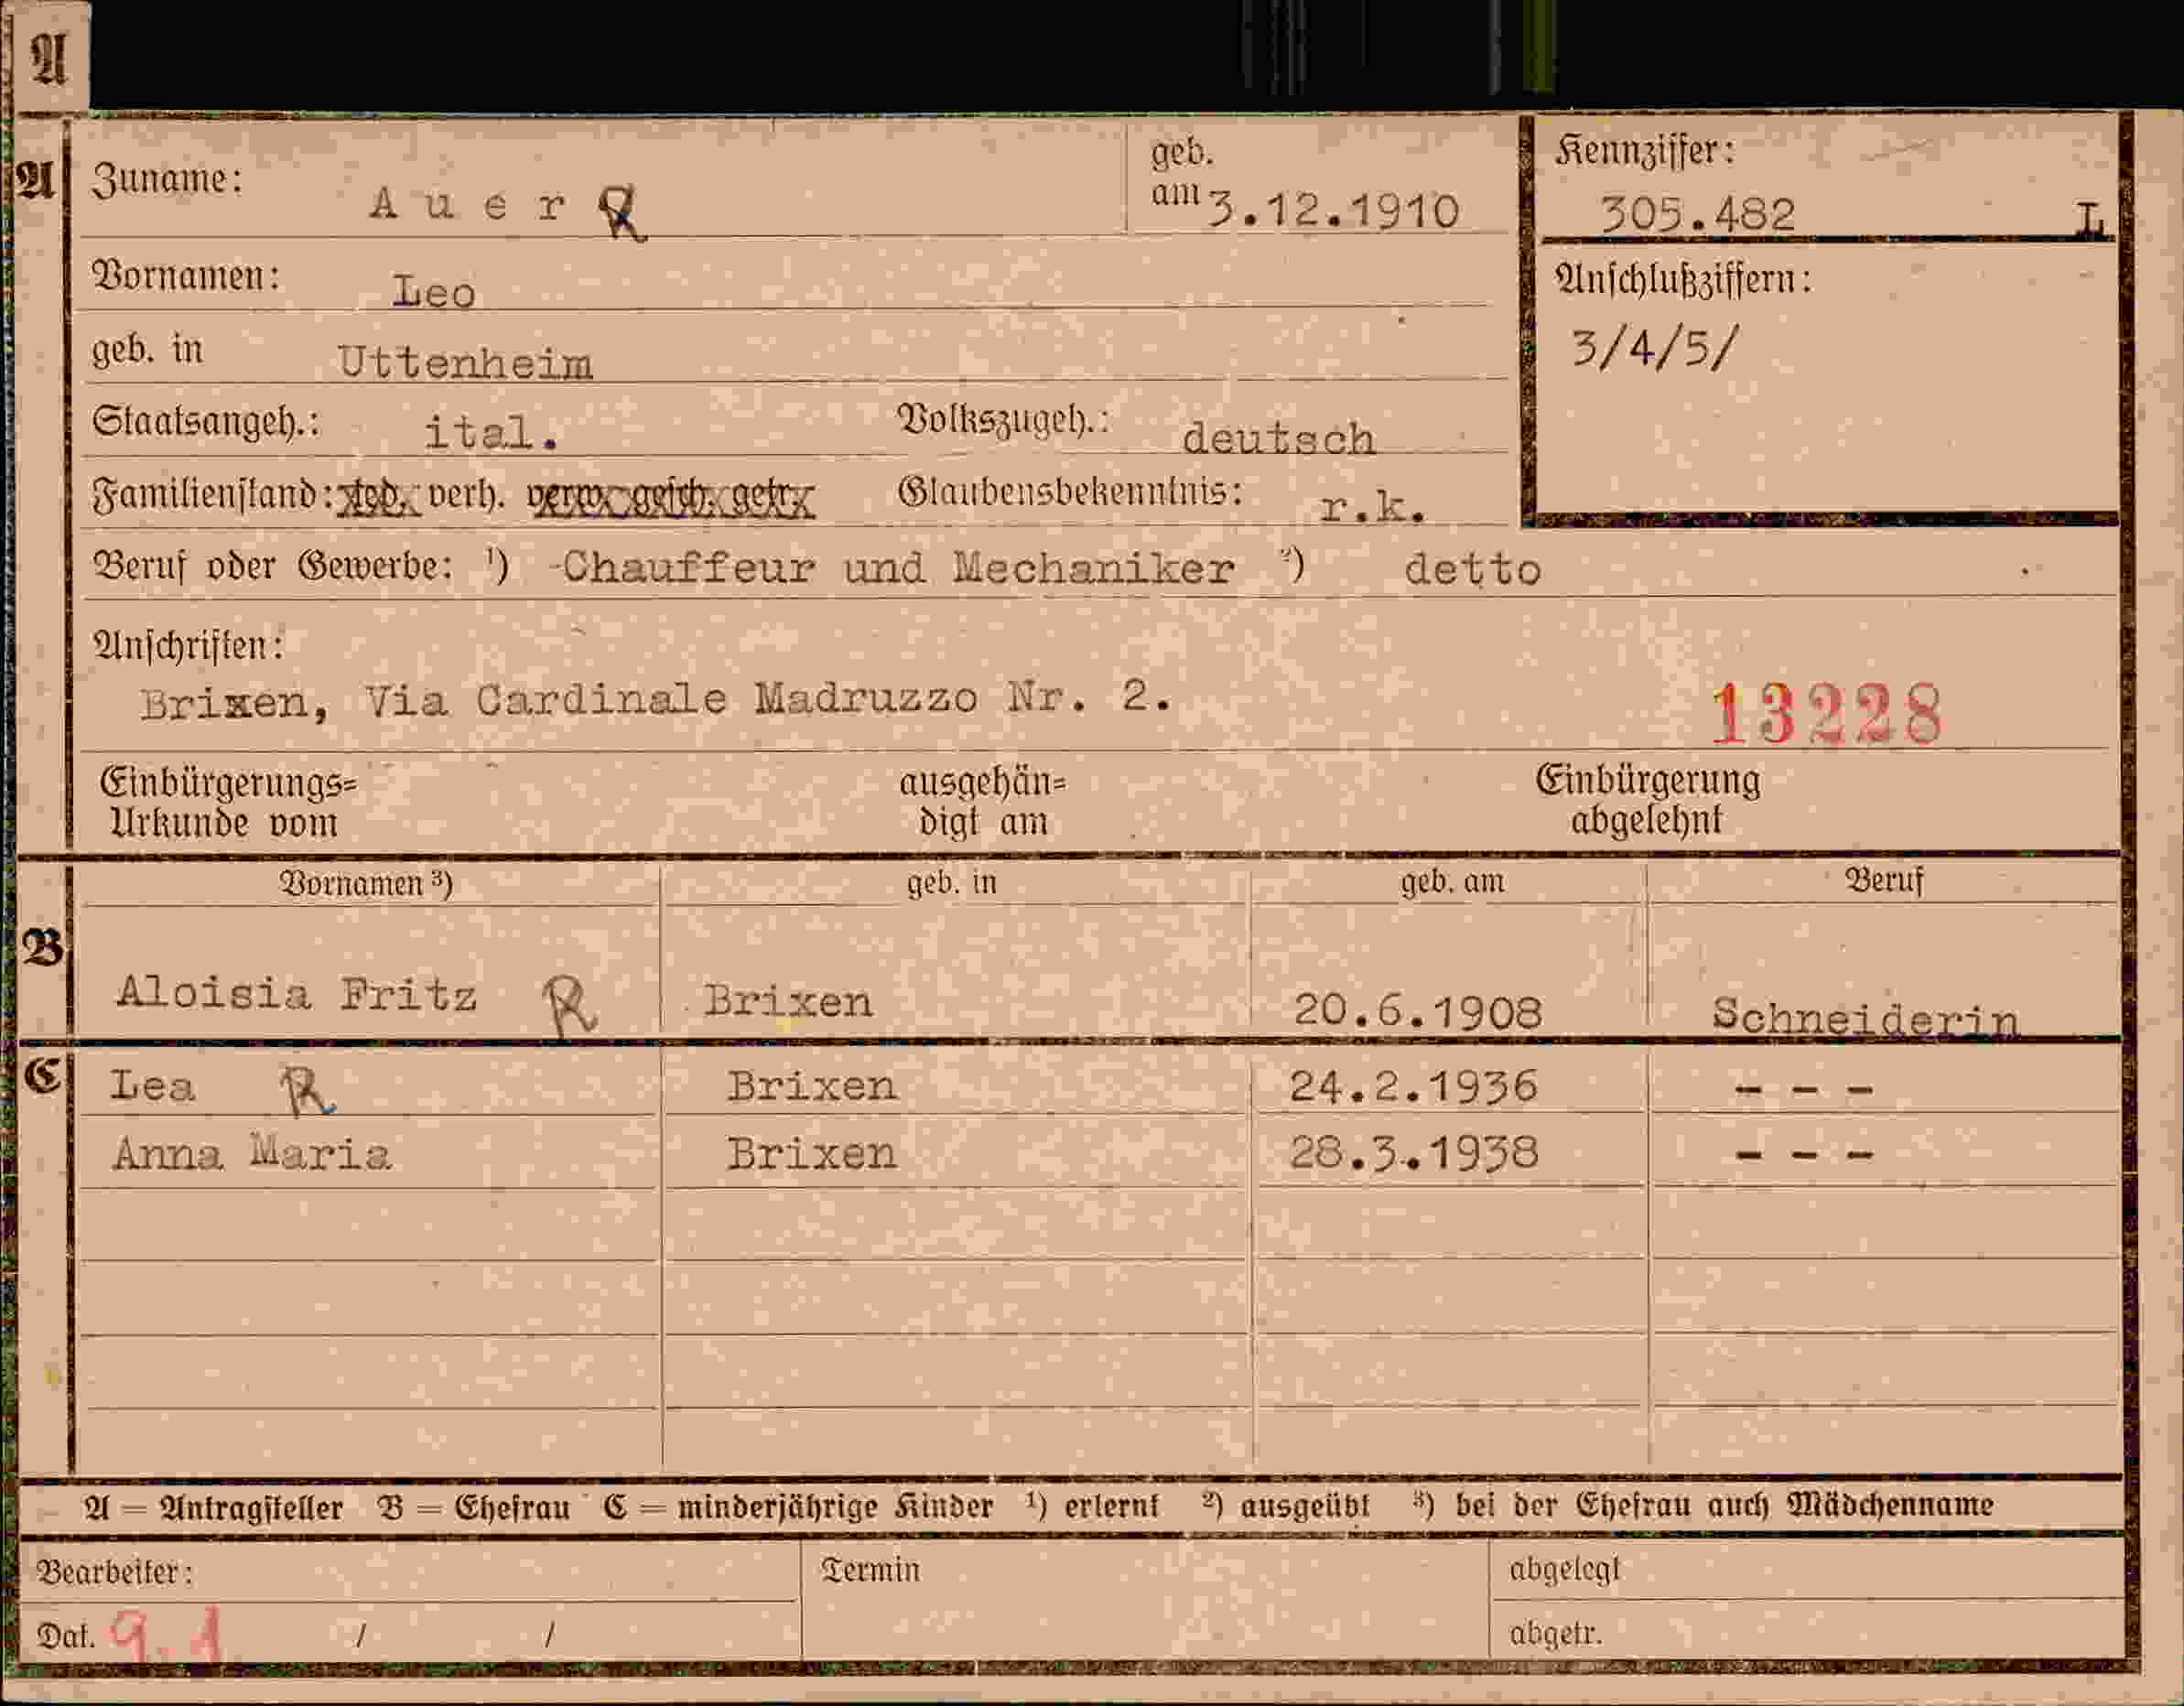 A
A Zuname: Auer R geb. am 3.12.1910
Kennziffer:
305.482 L
Vornamen: Leo
Anschlußziffern:
3/4/5/
geb. in Uttenheim
Staatsangeh.: ital. Volkszugeh.: deutsch
Familienstand: led. verh. verw. gesch. getr. Glaubensbekenntnis: r.k.
Beruf oder Gewerbe: ¹) Chauffeur und Mechaniker ²) detto
Anschriften:
Brixen, Via Cardinale Madruzzo Nr. 2. 13228
Einbürgerungs= ausgehän= Einbürgerung
Urkunde vom digt am abgelehnt
Vornamen ³) geb. in geb. am Beruf
B Aloisia Fritz R Brixen 20.6.1908 Schneiderin
C Lea R Brixen 24.2.1936 - - -
Anna Maria Brixen 28.3.1938 - - -
A = Antragsteller B = Ehefrau C = minderjährige Kinder ¹) erlernt ²) ausgeübt ³) bei der Ehefrau auch Mädchenname
Bearbeiter: Termin abgelegt
Dat. 9.1 / / abgetr.